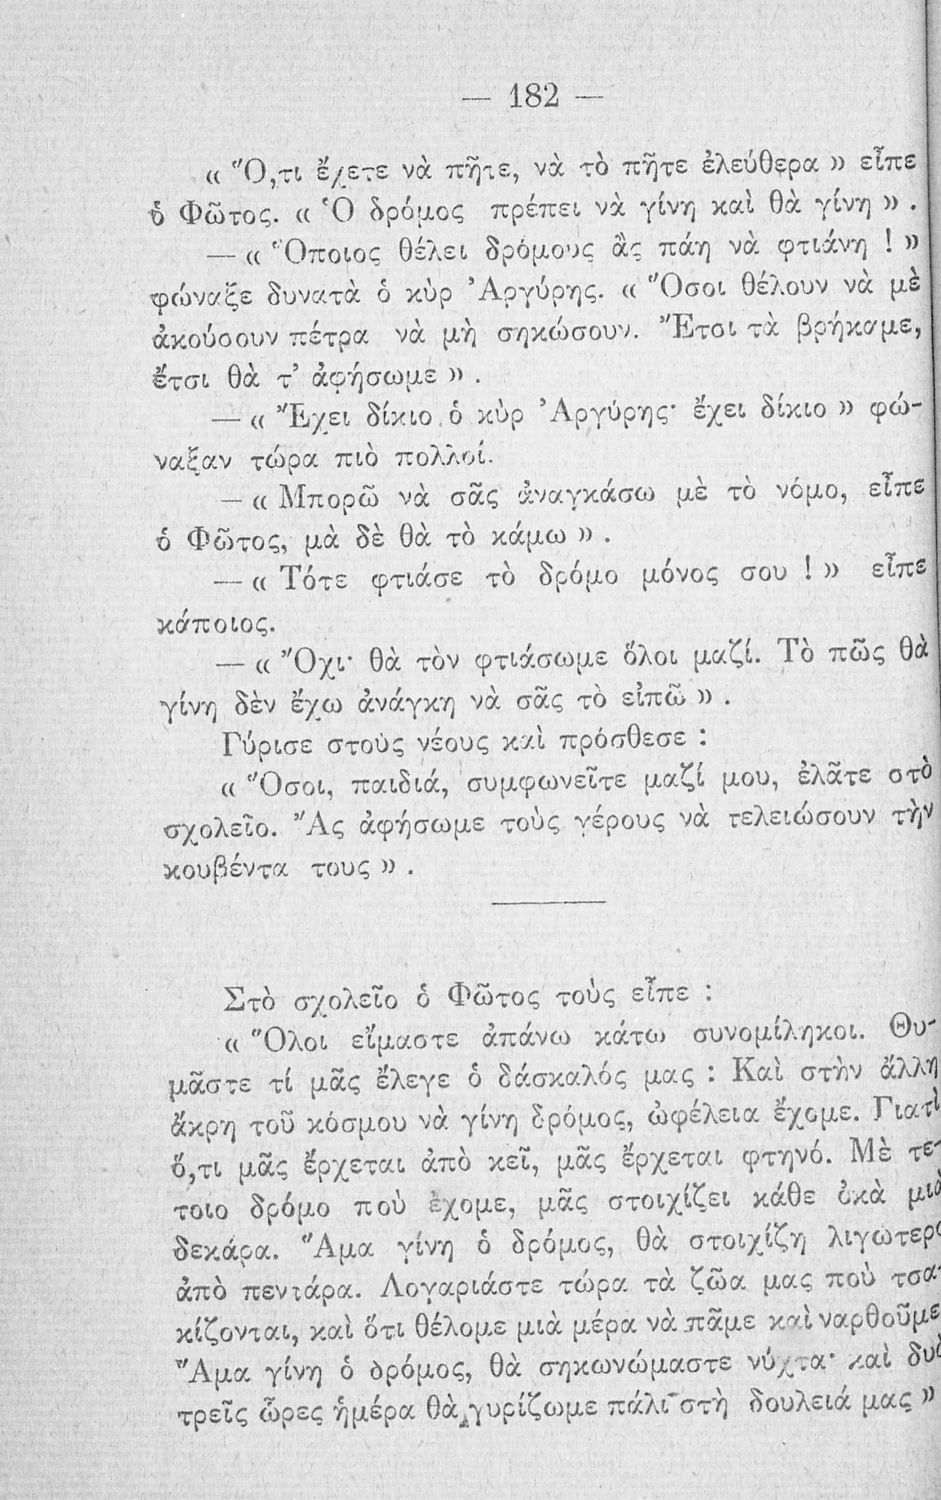 — 182 —
« Ὅ,τι ἔχετε νὰ πῆτε, νὰ τὸ πῆτε ἐλεύθερα » εἶπε
ὁ Φῶτος. « Ὁ δρόμος πρέπει νὰ γίνη καὶ θὰ γίνη » .
— « Ὅποιος θέλει δρόμους ἂς πάη νὰ φτιάνη ! »
φώναξε δυνατὰ ὁ κὺρ Ἀργύρης. « Ὅσοι θέλουν νὰ μὲ
ἀκούσουν πέτρα νὰ μὴ σηκώσουν. Ἔτσι τὰ βρήκαμε,
ἔτσι θὰ τ’ ἀφήσωμε » .
— « Ἔχει δίκιο ὁ κὺρ Ἀργύρης· ἔχει δίκιο » φώ-
ναξαν τώρα πιὸ πολλοί.
— « Μπορῶ νὰ σᾶς ἀναγκάσω μὲ τὸ νόμο, εἶπε
ὁ Φῶτος, μὰ δὲ θὰ τὸ κάμω » .
— « Τότε φτιάσε τὸ δρόμο μόνος σου ! » εἶπε
κάποιος.
— « Ὄχι· θὰ τὸν φτιάσωμε ὅλοι μαζί. Τὸ πῶς θὰ
γίνη δὲν ἔχω ἀνάγκη νὰ σᾶς τὸ εἰπῶ » .
Γύρισε στοὺς νέους καὶ πρόσθεσε :
« Ὅσοι, παιδιά, συμφωνεῖτε μαζί μου, ἐλᾶτε στὸ
σχολεῖο. Ἂς ἀφήσωμε τοὺς γέρους νὰ τελειώσουν τὴν
κουβέντα τους » .
Στὸ σχολεῖο ὁ Φῶτος τοὺς εἶπε :
« Ὅλοι εἴμαστε ἀπάνω κάτω συνομίληκοι. Θυ-
μᾶστε τί μᾶς ἔλεγε ὁ δάσκαλός μας : Καὶ στὴν ἄλλη
ἄκρη τοῦ κόσμου νὰ γίνη δρόμος, ὠφέλεια ἔχομε. Γιατὶ
ὅ,τι μᾶς ἔρχεται ἀπὸ κεῖ, μᾶς ἔρχεται φτηνό. Μὲ τέ-
τοιο δρόμο ποὺ ἔχομε, μᾶς στοιχίζει κάθε ὀκὰ μιὰ
δεκάρα. Ἅμα γίνη ὁ δρόμος, θὰ στοιχίζη λιγώτερο
ἀπὸ πεντάρα. Λογαριάστε τώρα τὰ ζῶα μας ποὺ τσα-
κίζονται, καὶ ὅτι θέλομε μιὰ μέρα νὰ πᾶμε καὶ ναρθοῦμε
Ἅμα γίνη ὁ δρόμος, θὰ σηκωνώμαστε νύχτα· καὶ δυὸ
τρεῖς ὧρες ἡμέρα θὰ γυρίζωμε πάλι στὴ δουλειά μας »